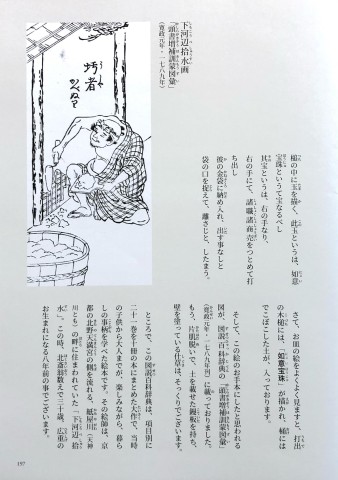 下河辺拾水画
「頭書増補訓蒙図彙」
（寛政元年・一七八九年）
圬者
かべぬり
槌の中に玉を描く、此玉というは、如意
宝珠というて宝なるべし
其宝というは、右の手なり、
右の手にて、諸職諸商売をつとめて打
ち出し
彼の金袋に納め入れ、出す事なしと
袋の口を捉えて、離さじと、したまう。
さて、お皿の絵をよくよく見ますと、打出
の木槌には、「如意宝珠」が描かれ、桶には
でこぼこした玉が、入っております。
そして、この絵のお手本にしたと思われる
図が、図説百科辞典の「頭書増補訓蒙図彙」
（寛政元年・一七八九年刊）に載っておりました。
もう、片肌脱いで、土を載せた鏝板を持ち、
壁を塗っている仕草は、そっくりでございます。
ところで、この図説百科辞典は、項目別に
二十一巻を十冊の本にまとめた大作で、当時
の子供から大人までが、楽しみながら、暮ら
しの事柄を学べた絵本です。その絵師は、京
都の北野天満宮の側を流れる、紙屋川（天神
川とも）の畔に住まわれていた「下河辺 拾
水」。この時、北斎翁数えで三十歳、広重の
お生まれになる八年前の事でございます。
197